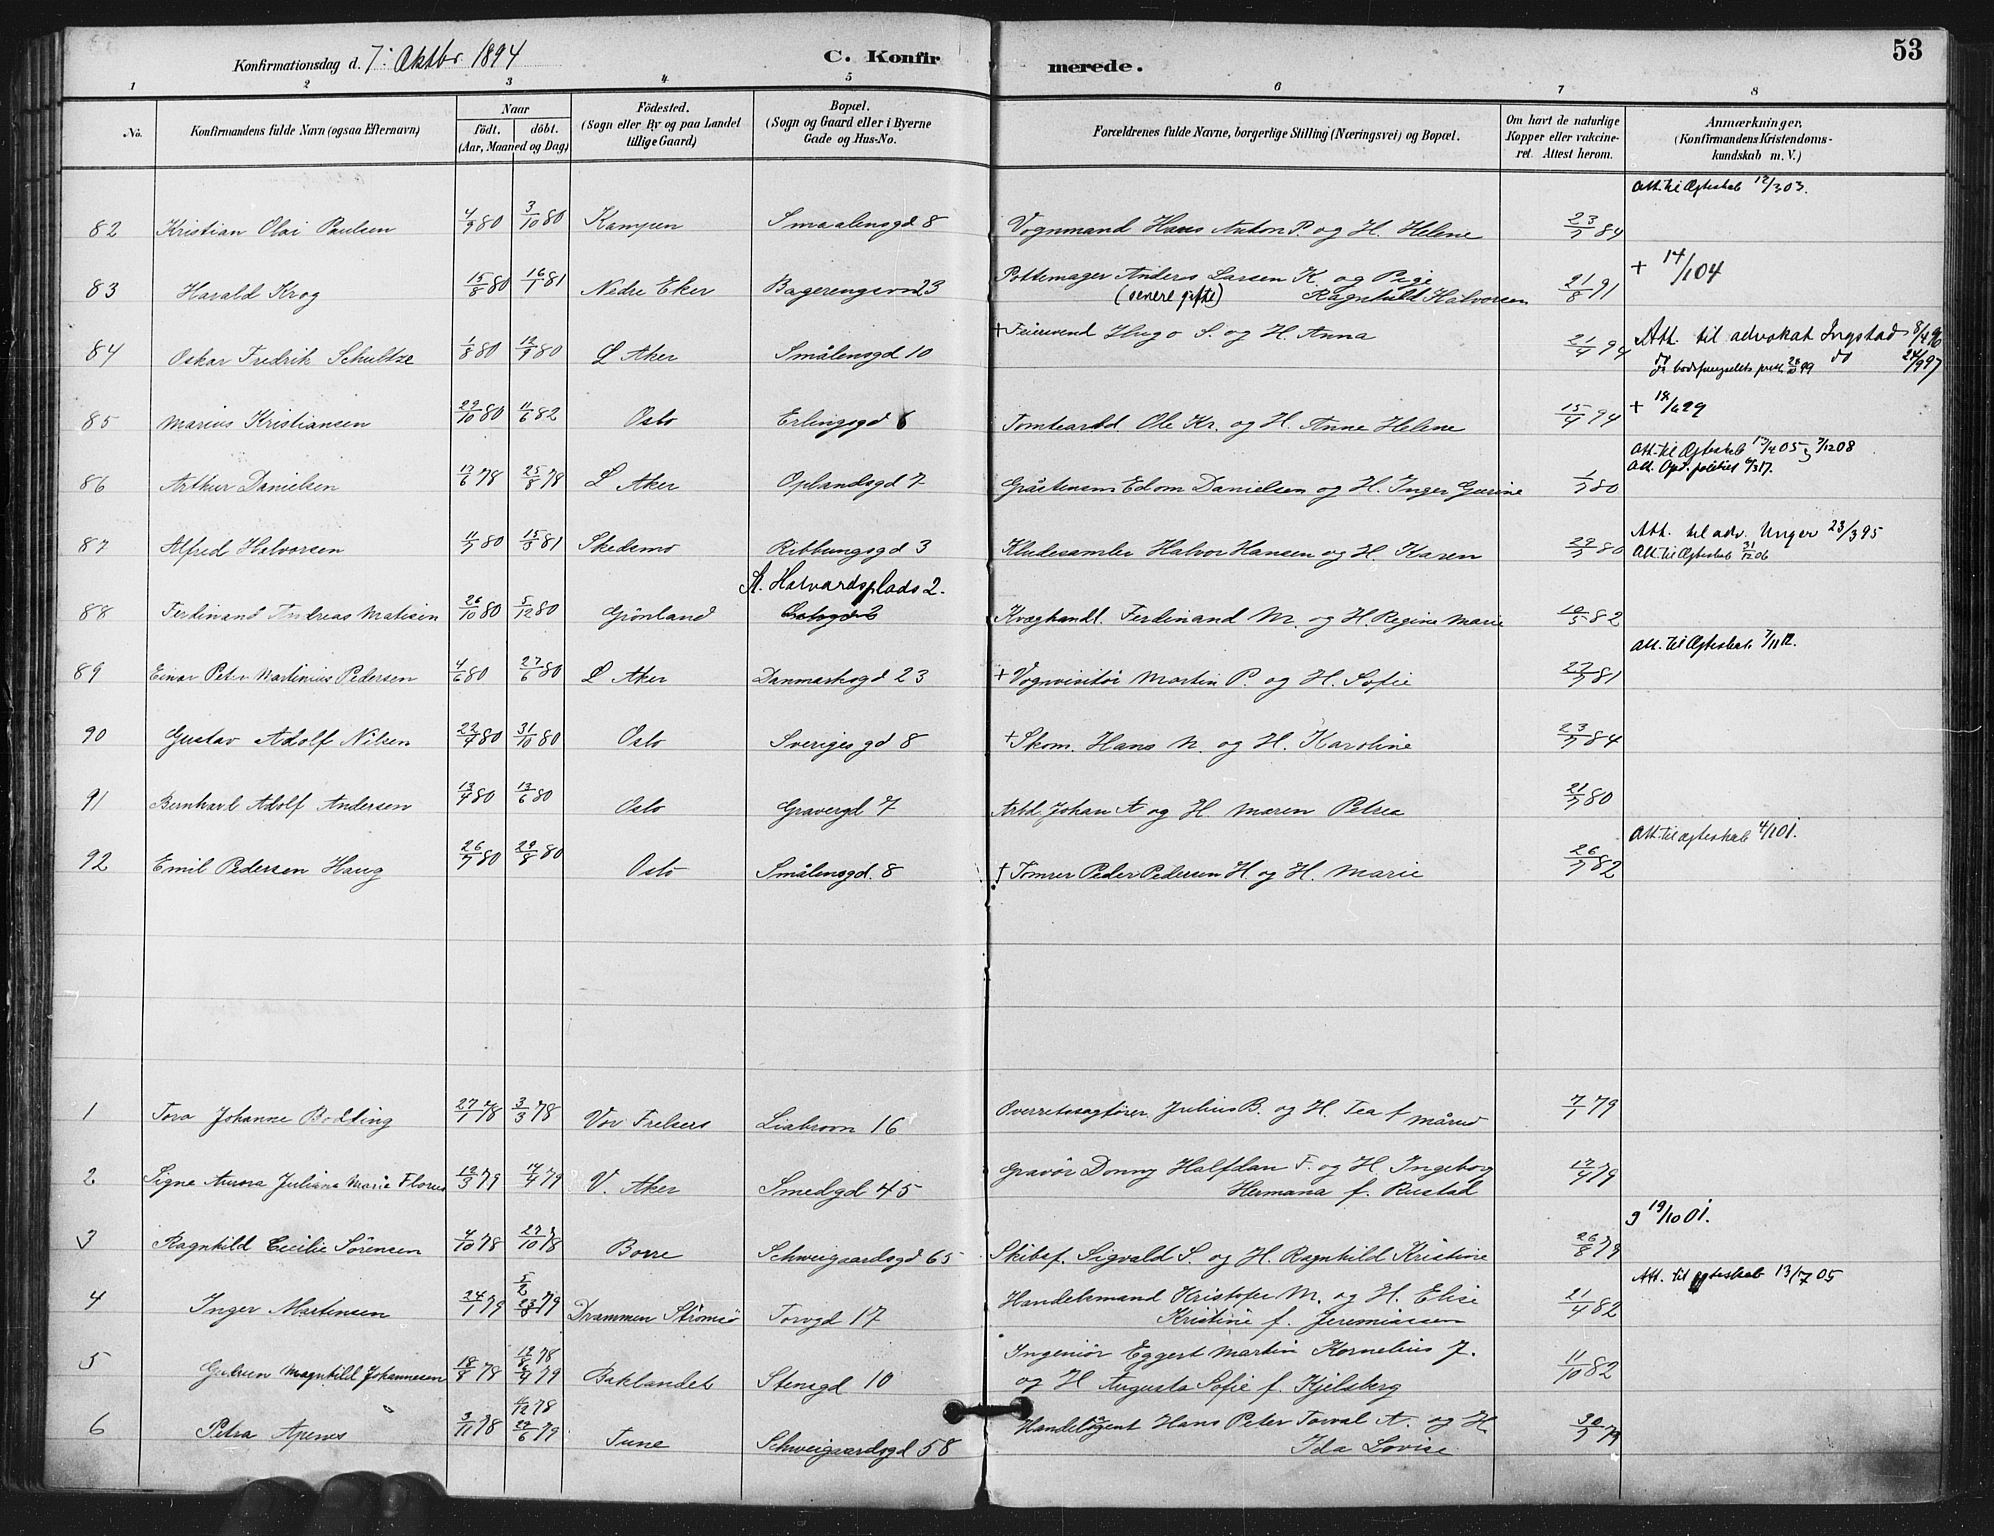 Konfirmationsdag d. 7. Oktbr 1894 C. Konfir merede. 53
1 2 3 4 5 6 7 8
No. Konfirmandens fulde Navn (ogsaa Efternavn) Naar födt. döbt. (Aar, Maaned og Dag) Födested. (Sogn eller By og paa Landet tillige Gaard) Bopæl. (Sogn og Gaard eller i Byerne Gade og Hus-No. Forældrenes fulde Navne, borgerlige Stilling (Næringsvei) og Bopæl. Om havt de naturlige Kopper eller vakcineret. Attest herom. Anmærkninger, (Konfirmandens Kristendomskundskab m. V.)
Att. til Ægteskab 12/3 03.
82 Kristian Olai Paulsen 4/9 80 3/10 80 Kampen Smaalensgd 8 Vognmand Hans Anton P. og H. Helene 23/7 84
83 Harald Krog 15/8 80 16/1 81 Nedre Eker Bagerengsvn 23 Pottemager Anders Larsen K. og Pige 21/8 91 + 14/1 04
(senere gifte) Ragnhild Halvorsen
84 Oskar Fredrik Schultze 1/8 80 12/9 80 L Aker Smålensgd 10 + Feiersvend Hugo S. og H. Anna 21/4 94 Att. til advokat Ingstad 8/4 96
do bodsfængslets præst 28/10 99 do 24/9 97
85 Marius Kristiansen 29/10 80 11/6 82 Oslo Erlingsgd 6 Tomtearbd. Ole Kr. og H. Anne Helene 15/4 94 + 18/6 29
Att. til Ægteskab 12/4 05 og 7/12 08
86 Arthur Danielsen 17/6 78 25/8 78 L Aker Oplandsgd 7 Gråstensm Edom Danielsen og H. Inger Gurine 1/7 80 Att. Opd. politiet 6/3 17.
87 Alfred Halvorsen 11/7 80 13/3 81 Skedsmo Ribbungsgd 3 Kludesamler Halvor Hansen og H. Karen 29/7 80 Att. til adv. Unger 23/3 95
Att. til Ægteskab 31/12 06
St. Halvardsplads 2.
88 Ferdinand Andreas Matisen 26/10 80 5/12 80 Grönland Oslogd 2 Kvæghandl. Ferdinand M. og H. Regine Marie 10/5 82
Att. til Ægteskab 7/11 12.
89 Einar Peter Martinius Pedersen 4/6 80 27/6 80 L Aker Danmarksgd 23 + Vognvisitör Martin P. og H. Sofie 27/7 81
90 Gustav Adolf Nilsen 22/7 80 31/10 80 Oslo Sverigesgd 8 + Skom. Hans N. og H. Karoline 23/7 84
91 Bernhard Adolf Andersen 13/4 80 13/6 80 Oslo Gravergd 7 Arbd. Johan A og H. Maren Petrea 21/7 80
92 Emil Pedersen Haug 26/7 80 29/8 80 Oslo Smålensgd. 8 † Tömrer Peder Pedersen H. og H. Marie 26/7 82 Att. til ægteskab 4/1 01.
1 Tora Johanne Bodding 27/1 78 3/3 78 Vor Frelsers Liabroon 16 Overretssagförer Julius B. og H. Tea f Mårud 7/1 79
2 Signe Aurora Juliana Marie Florus 12/3 79 14/4 79 V. Aker Smedgd 45 Gravör Donny Halfdan F. og H. Ingeborg 17/4 79
Hermana f. Rustad
3 Ragnhild Cecilie Sörensen 4/10 78 27/10 78 Borre Schweigaardsgd 65 Skibsf. Sigvald S. og H. Ragnhild Kristine 26/8 79 19/10 01.
4 Inger Martinsen 24/1 79 5/2 23/3 79 Drammen Strömsö Torvgd 17 Handelsmand Kristofer M. og H. Elise 21/4 82 Att. til ægteskab 13/7 05
Kristine f. Jeremiassen
5 Gudrun Magnhild Johannesen 18/7 78 12/8 78 6/4 79 Baklandet Stensgd 10 Ingeniör Eggert Martin Kornelius J. 11/10 82
og H Augusta Sofie f. Kjelsberg
6 Petra Apenes 3/11 78 4/12 78 22/6 79 Tune Schweigaardsgd 58 Handelsagent Hans Peter Torval A. og H. 30/7 79
Ida Lovise